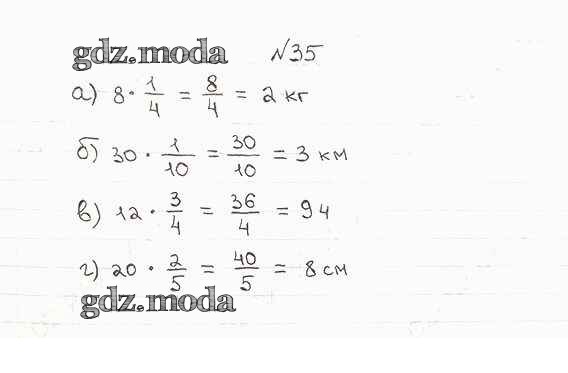 gdz.moda №35
а) 8 · 1/4 = 8/4 = 2 кг
б) 30 · 1/10 = 30/10 = 3 км
в) 12 · 3/4 = 36/4 = 9 ч
г) 20 · 2/5 = 40/5 = 8 см
gdz.moda